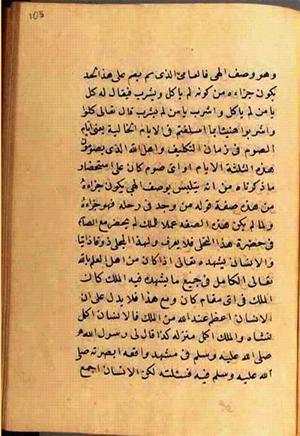 105
وهو وصف الهى فالصائم الذى سم يصم على هذا الحد
يكون جزاءه من كونه لم يأكل ويشرب فيقال له كل
يا من لم ياكل واشرب يا من لم يشرب قال تعالى كلوا
واشربوا هنيئا بما اسلفتم فى الايام الخالية يعنى ايام
الصوم فى زمان التكليف واهل الله الذى يصومون
هذه الثلثة الايام او اى صوم كان على استحضار
ما ذكرناه من انه يتلبس بوصف الهى يكون جزاءه
من هذه صفة قوله من وجد فى رحله فهو جزاءه
ولما لم يكن هذه الصفة عملا للملك لم يحضر مع الصائم
فى حضرة هذا التجلى فلا يعرف ولهذا المجلى ذوقا ذاتيا
والانسان يشهده تعالى اذا كان من اهل العلم بالله
تعالى الكامل فى جميع ما يشهده فيه الملك كانت
الملك فى اى مقام كان ومع هذا فلا يدل على ان
الانسان اعظم عند الله من الملك فالانسان اكمل
نشأه والملك اكمل منزله كذا قال لى رسول الله
صلى الله عليه وسلم فى مشهد واقعة ابصرته صلى
الله عليه وسلم فيه فسئلته لكن الانسان اجمع